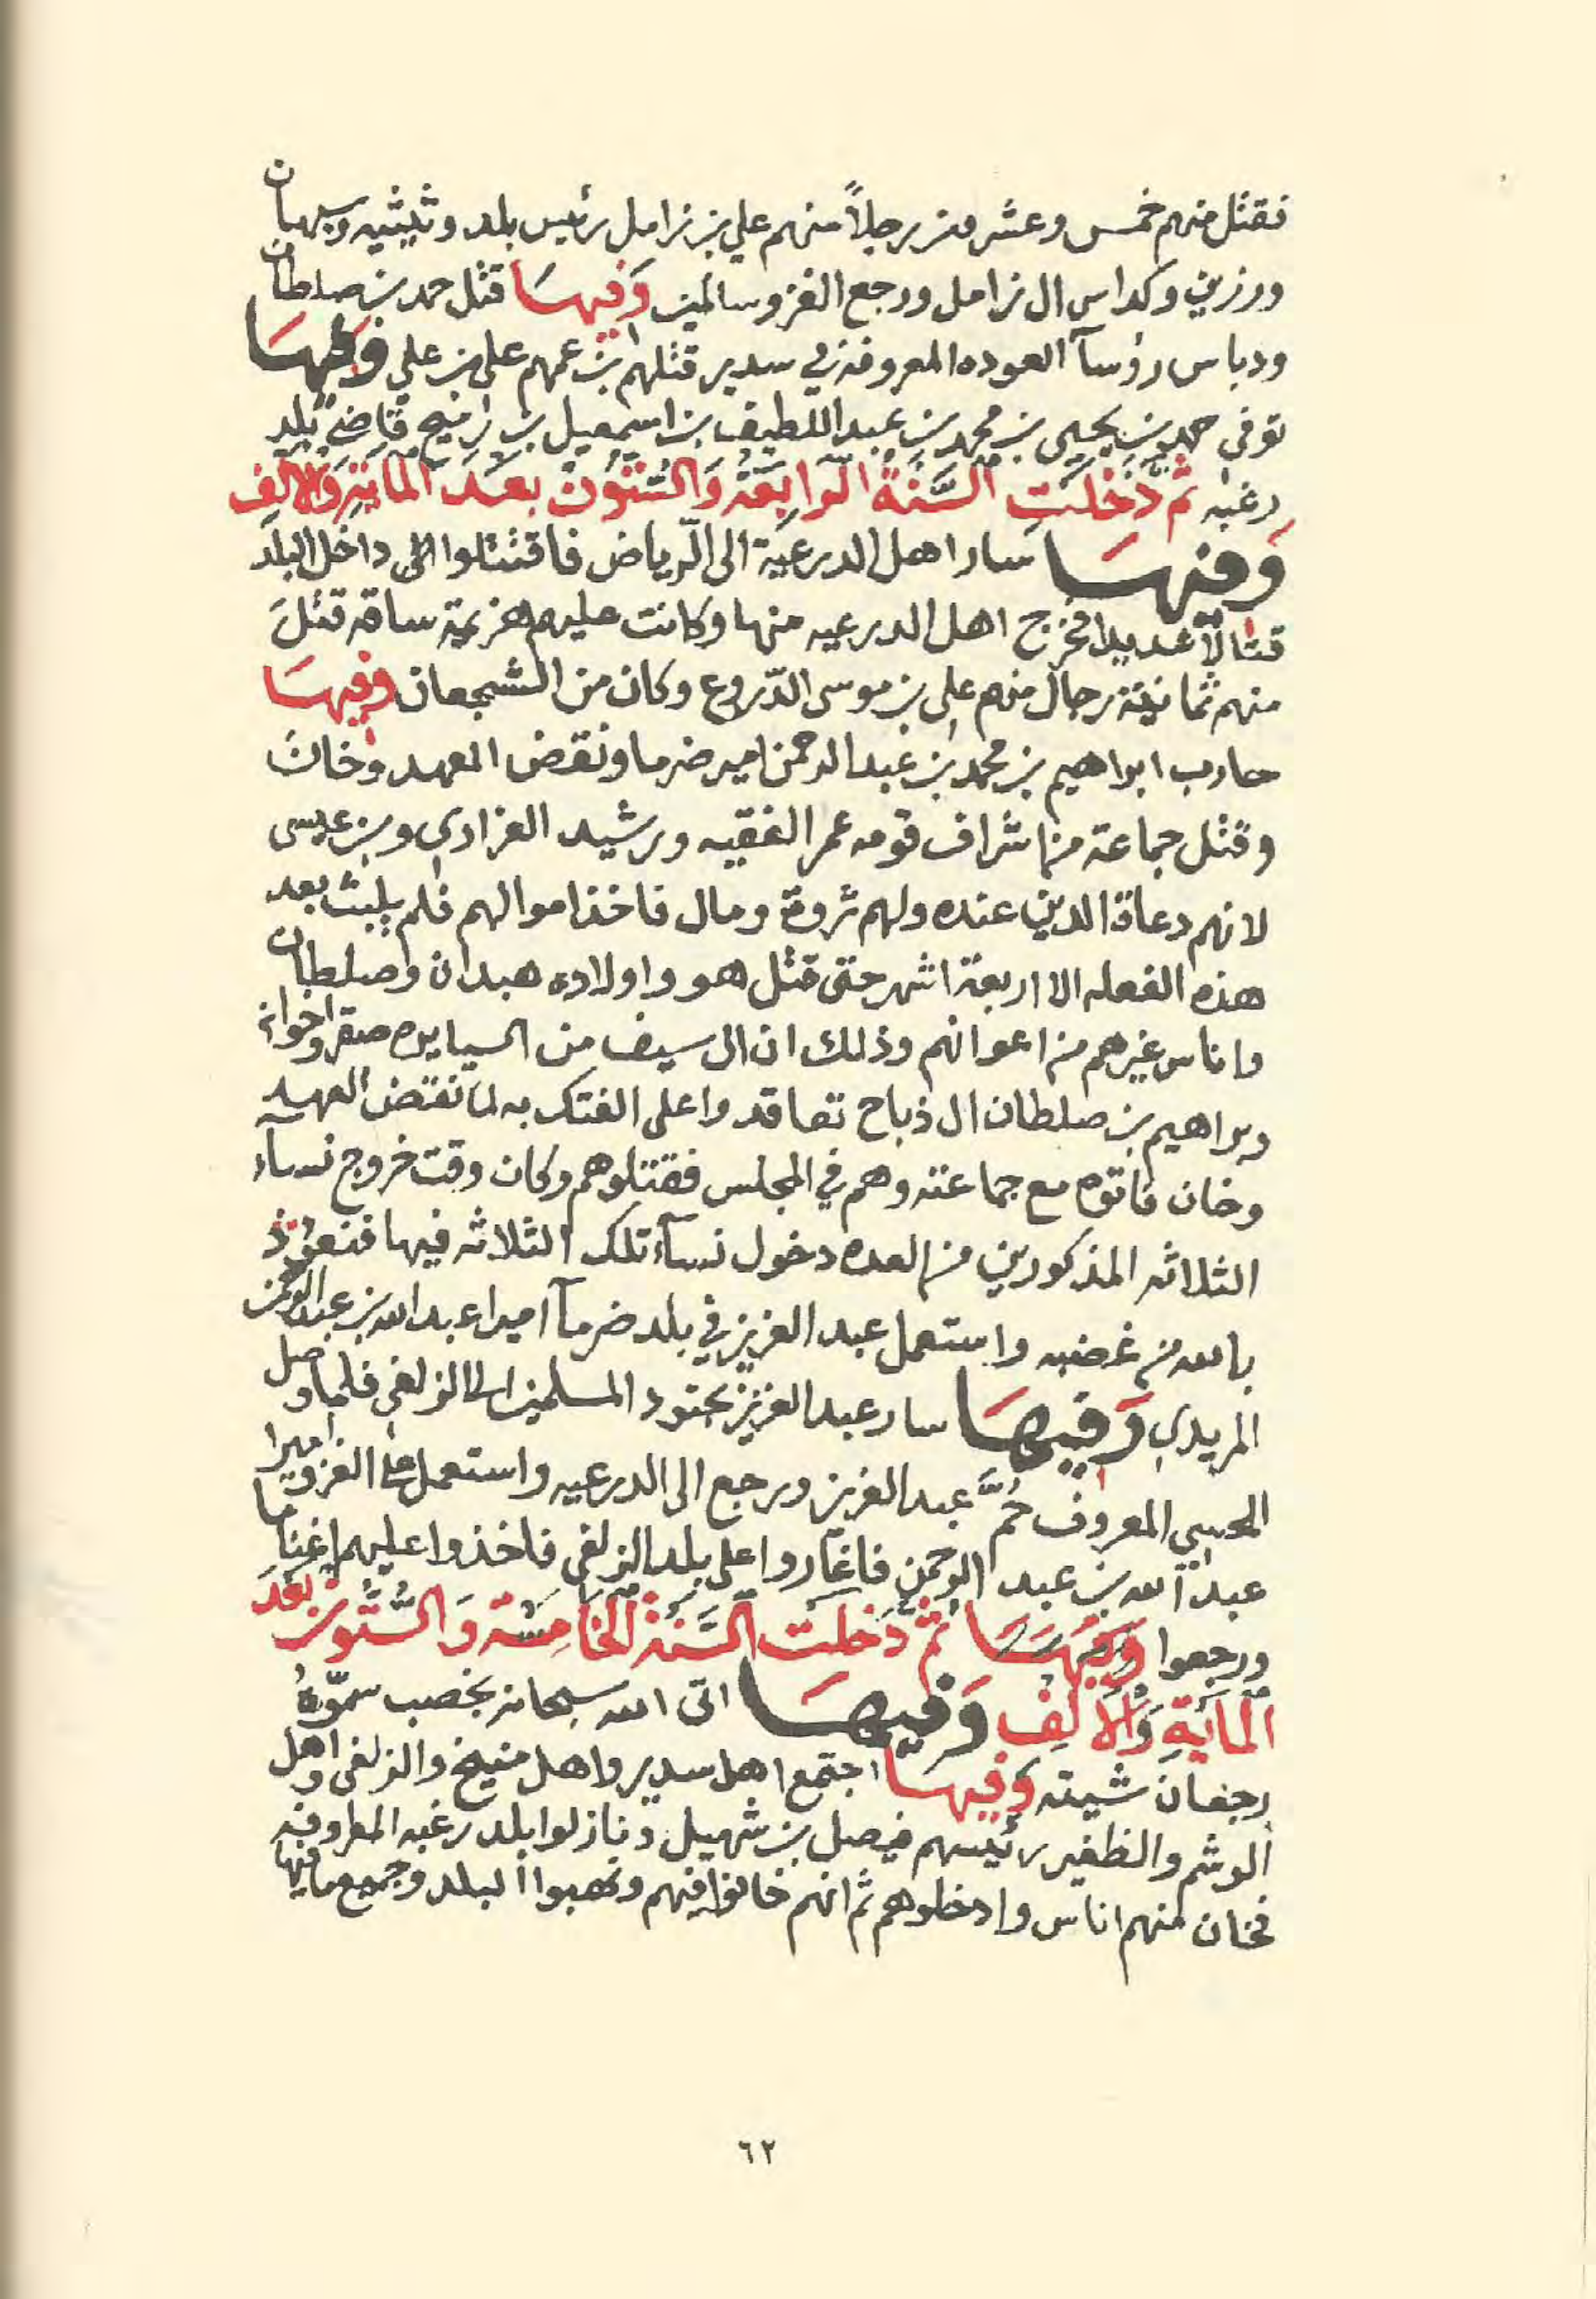 فقتل منهم خمس وعشرون رجلاً منهم علي بن زامل رئيس بلد وثيثيه وسبهان
ورزين وكداس ال زامل ورجع الغزو سالمين وَفِيهَا قتل حمد بن صلطان
ودباس رؤسآ العوده المعروفه في سدير قتلهم ابن عمهم علي بن علي وَفيهَا
توفى حمد بن يحيى بن محمد بن عبد اللطيف بن اسمعيل بن رميح قاضي بلد
رغبه ثمَّ دَخَلَتِ السَّنَةُ الرابِعَةُ وَالسُّتوُنْ بعَدَ المَايَةِ وَالالِف
وَفيهَا سار اهل الدرعيّة الى الرّياض فاقتتلوا الى داخل البلد
قتالاً شديدا فخرج اهل الدرعيه منها وكانت عليهم هزيمة ساقه قتلَ
منهم ثمانيَة رجال منهم علي بن موسى الدّروع وكان من الشجعان وفيهَا
حارب ابراهيم بن محمد بن عبد الرحمن امير ضرما ونقض العهد وخان
وقتل جماعة من اشراف قومه عمر الفقيه ورشيد العزاري وبن عيسى
لانهم دعاة الدين عنده ولهم ثروة ومال فاخذ اموالهم فلم يلبث بعد
هذه الفعله الا اربعة اشهر حتى قتل هو واولاده هبدان وصلطان
واناس غيرهم من اعوانهم وذلك ان ال سيف من السيايره صقر واخوانه
وبراهيم بن صلطان ال ذباح تعاقدوا على الفتك به لما نقض العهد
وخان فاتوه مع جماعته وهم في المجلس فقتلوهم وكان وقت خروج نسآء
الثلاثه المذكورين من العده دخول نسآء تلك الثلاثه فيها فنعوُذ
بالله من غضبه واستعمل عبد العزيز في بلد ضرمآ اميرا عبد الله بن عبد الرحمن
المريدي وَفيهَا سار عبد العزيز بجنود المسلمين الى الزلفي فلما وصل
المحببي المعروف حُمَّ عبد العزيز ورجع الى الدرعيه واستعمل على الغزو اميرا
عبد الله بن عبد الرحمن فاغاروا على بلد الزلفي فاخذوا عليهم اغناما
ورجعوا وَفيهَا ثمَّ دَخلَت السَّنة الخَامِسَة وَالسُّتُون بَعَدَ
المايَةِ وَالاَلِف وَفيهَا اتى الله سبحانه بخصب سمّوُهُ
رجعان شيته وَفيهَا اجتمع اهل سدير واهل منيخ والزلفي واهل
الوشم والظفير رئيسهم فيصل بن شهيل ونازلوا بلد رغبه المعروفه
فخان منهم اناس وادخلوهم ثم انهم خانوا فيهم ونهبوا البلد وجميع ما فيها
٦٢